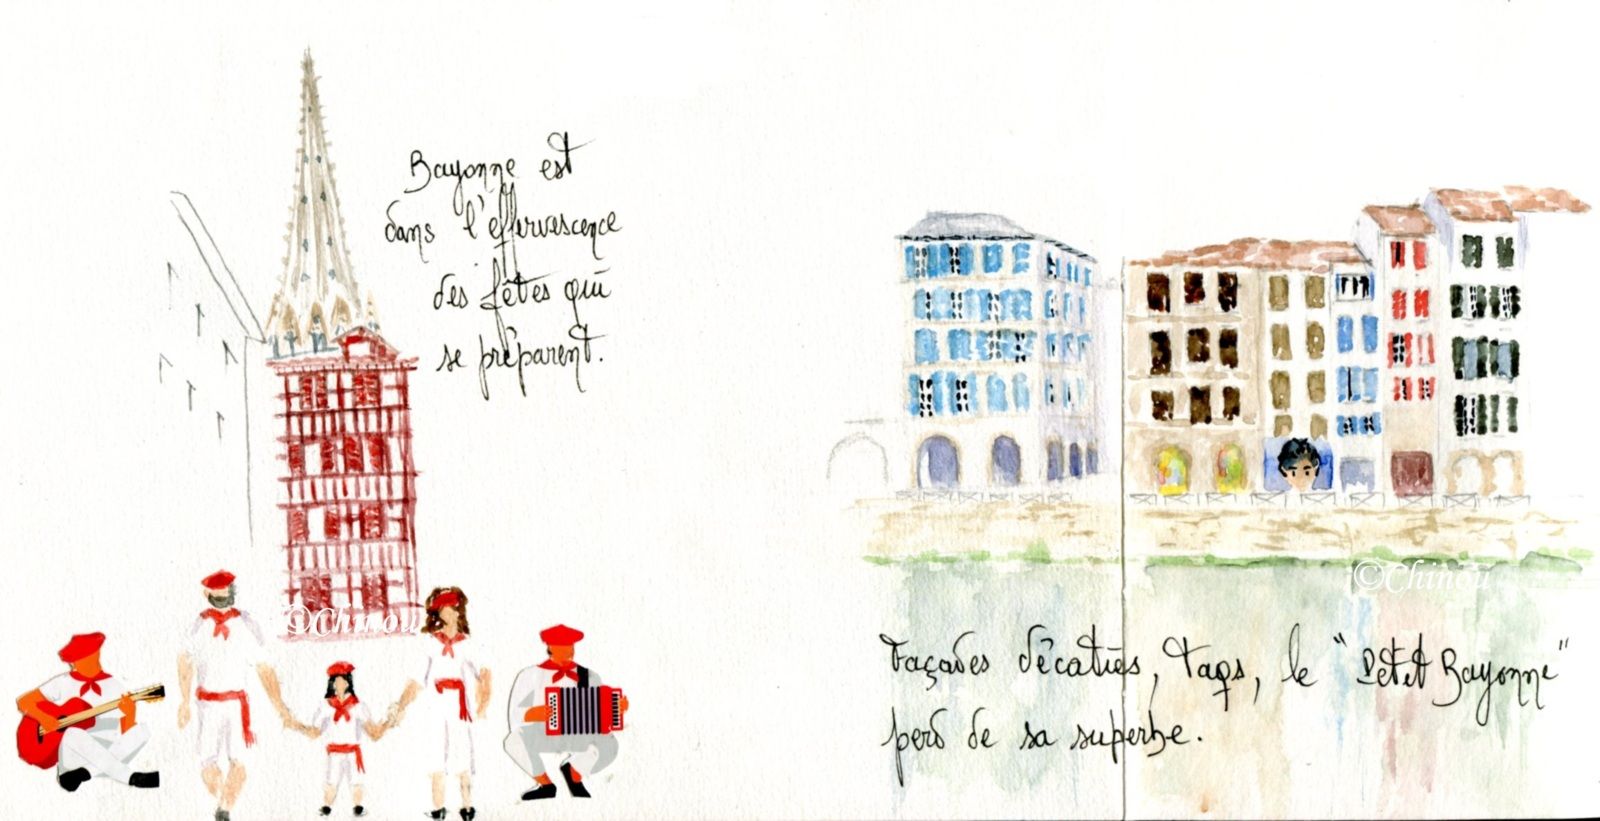 Bayonne est
dans l'effervescence
des fêtes qui
se préparent.
©Chinou
©Chinou
Façades décaties, tags, le "Petit Bayonne"
perd de sa superbe.